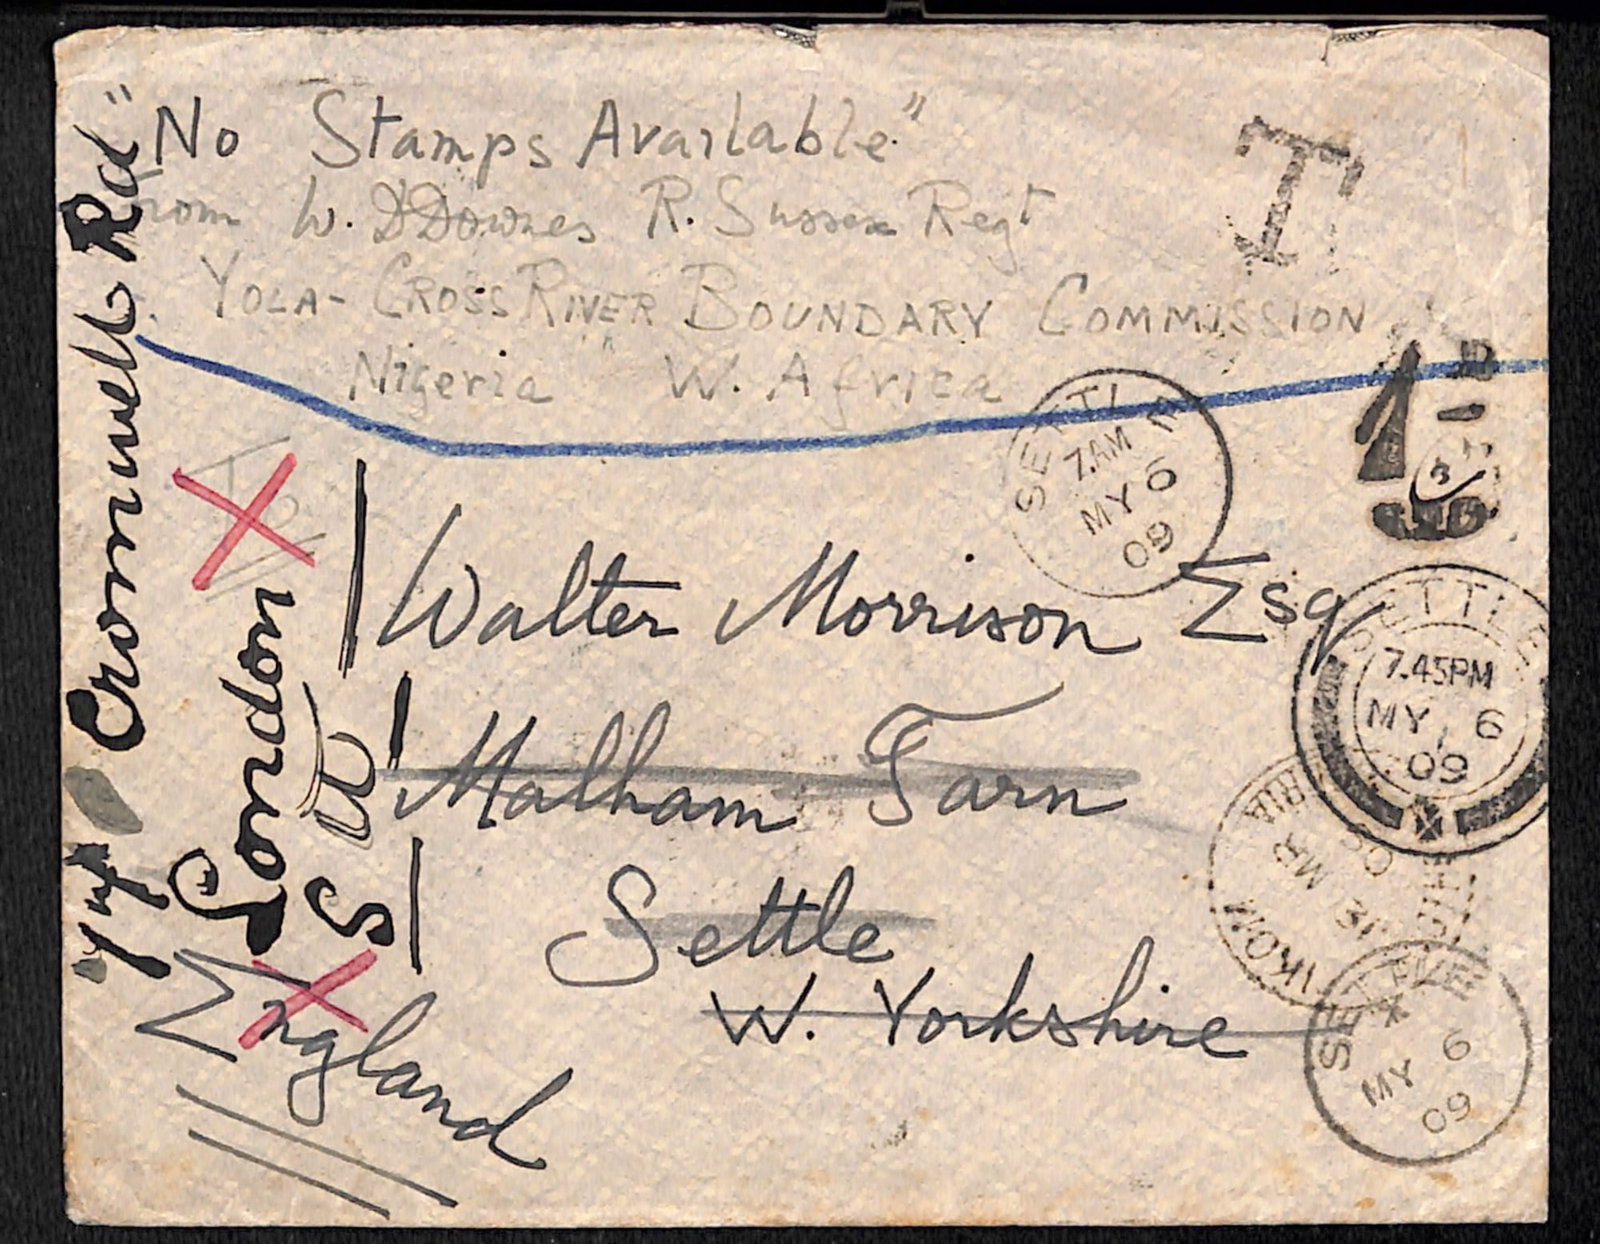 "No Stamps Available"
From W. D Downes R. Sussex Regt
YOLA-CROSS RIVER BOUNDARY COMMISSION
Nigeria W. Africa
T
SETTLE
7.AM
MY 6
09
To
Walter Morrison Esq
Malham Tarn
Settle
W. Yorkshire
England
Cromwell Rd
London
S W
SETTLE
7.45PM
MY 6
09
IKOM
16 MR
09
SETTLE
MY 6
09